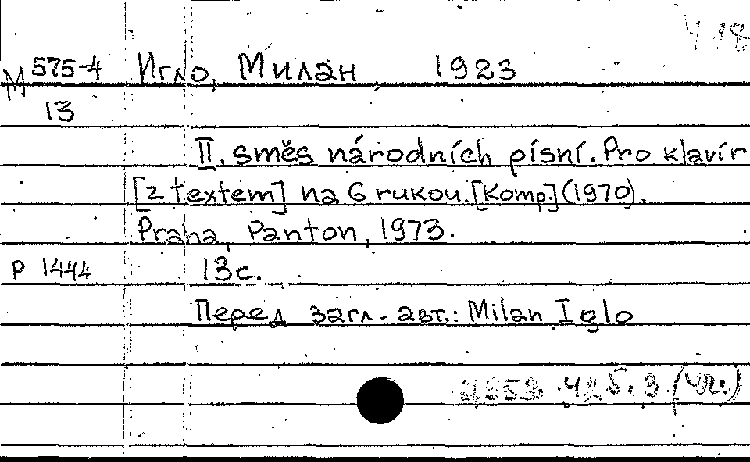 М 575-4 Игло, Милан 1923
13
II. směs národních písní. Pro klavír
[z textem] na 6 rukou. [Komp.] (1970).
Praha, Panton, 1973.
Р 1444 13с.
Перед загл. авт.: Milan Iglo